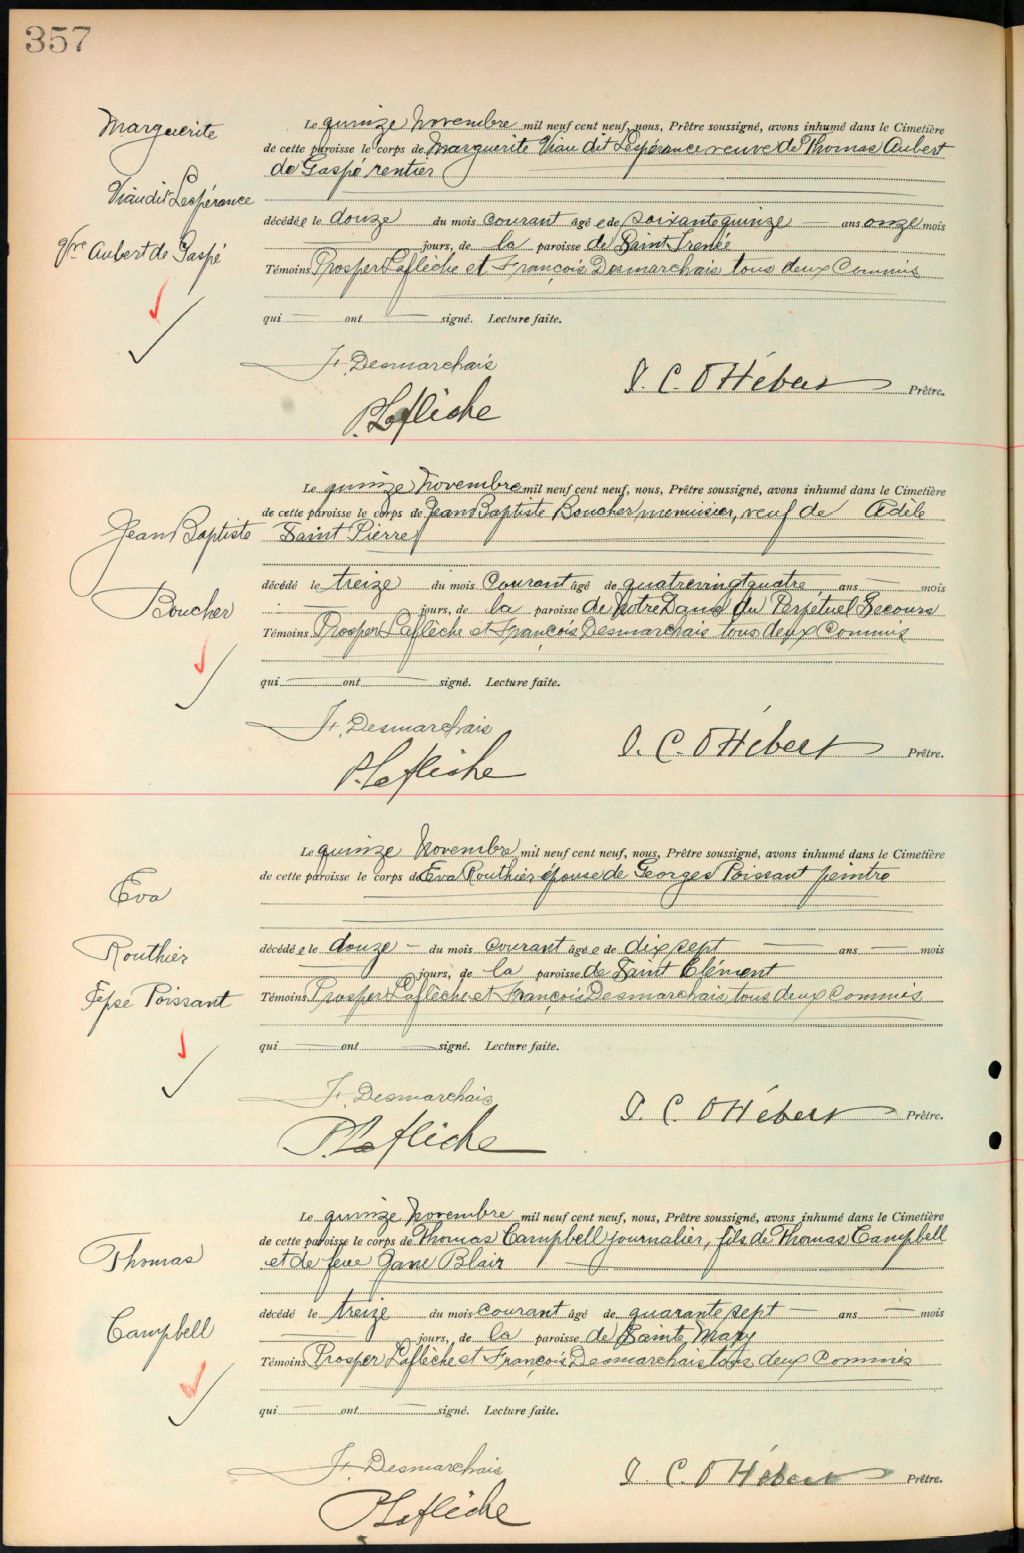 357
Marguerite
Viau dit Lespérance
Vve Aubert de Gaspé
Le quinze Novembre mil neuf cent neuf, nous, Prêtre soussigné, avons inhumé dans le Cimetière
de cette paroisse le corps de Marguerite Viau dit Lespérance veuve de Thomas Aubert
de Gaspé rentier
décédée le douze du mois courant âgée de soixante quinze ans onze mois
jours, de la paroisse de Saint Irenée
Témoins Prosper Laflèche et François Desmarchais tous deux Commis
qui ont signé. Lecture faite.
F. Desmarchais
J. C. O Hébert Prêtre.
P. Laflèche
Jean Baptiste
Boucher
Le quinze Novembre mil neuf cent neuf, nous, Prêtre soussigné, avons inhumé dans le Cimetière
de cette paroisse le corps de Jean Baptiste Boucher menuisier, veuf de Adèle
Saint Pierre
décédé le treize du mois Courant âgé de quatrevingtquatre ans mois
jours, de la paroisse de Notre Dame du Perpétuel Secours
Témoins Prosper Laflèche et François Desmarchais tous deux Commis
qui ont signé. Lecture faite.
F. Desmarchais
J. C. O Hébert Prêtre.
P. Laflèche
Eva
Routhier
Fepse Poissant
Le quinze Novembre mil neuf cent neuf, nous, Prêtre soussigné, avons inhumé dans le Cimetière
de cette paroisse le corps de Eva Routhier épouse de Georges Poissant peintre
décédée le douze du mois courant âgée de dix sept ans mois
jours, de la paroisse de Saint Clément
Témoins Prosper Laflèche et François Desmarchais tous deux Commis
qui ont signé. Lecture faite.
F. Desmarchais
J. C. O Hébert Prêtre.
P. Laflèche
Thomas
Campbell
Le quinze Novembre mil neuf cent neuf, nous, Prêtre soussigné, avons inhumé dans le Cimetière
de cette paroisse le corps de Thomas Campbell journalier, fils de Thomas Campbell
et de feue Jane Blair
décédé le treize du mois courant âgé de quarante sept ans mois
jours, de la paroisse de Sainte Mary
Témoins Prosper Laflèche et François Desmarchais tous deux Commis
qui ont signé. Lecture faite.
F. Desmarchais
J. C. O Hébert Prêtre.
P. Laflèche